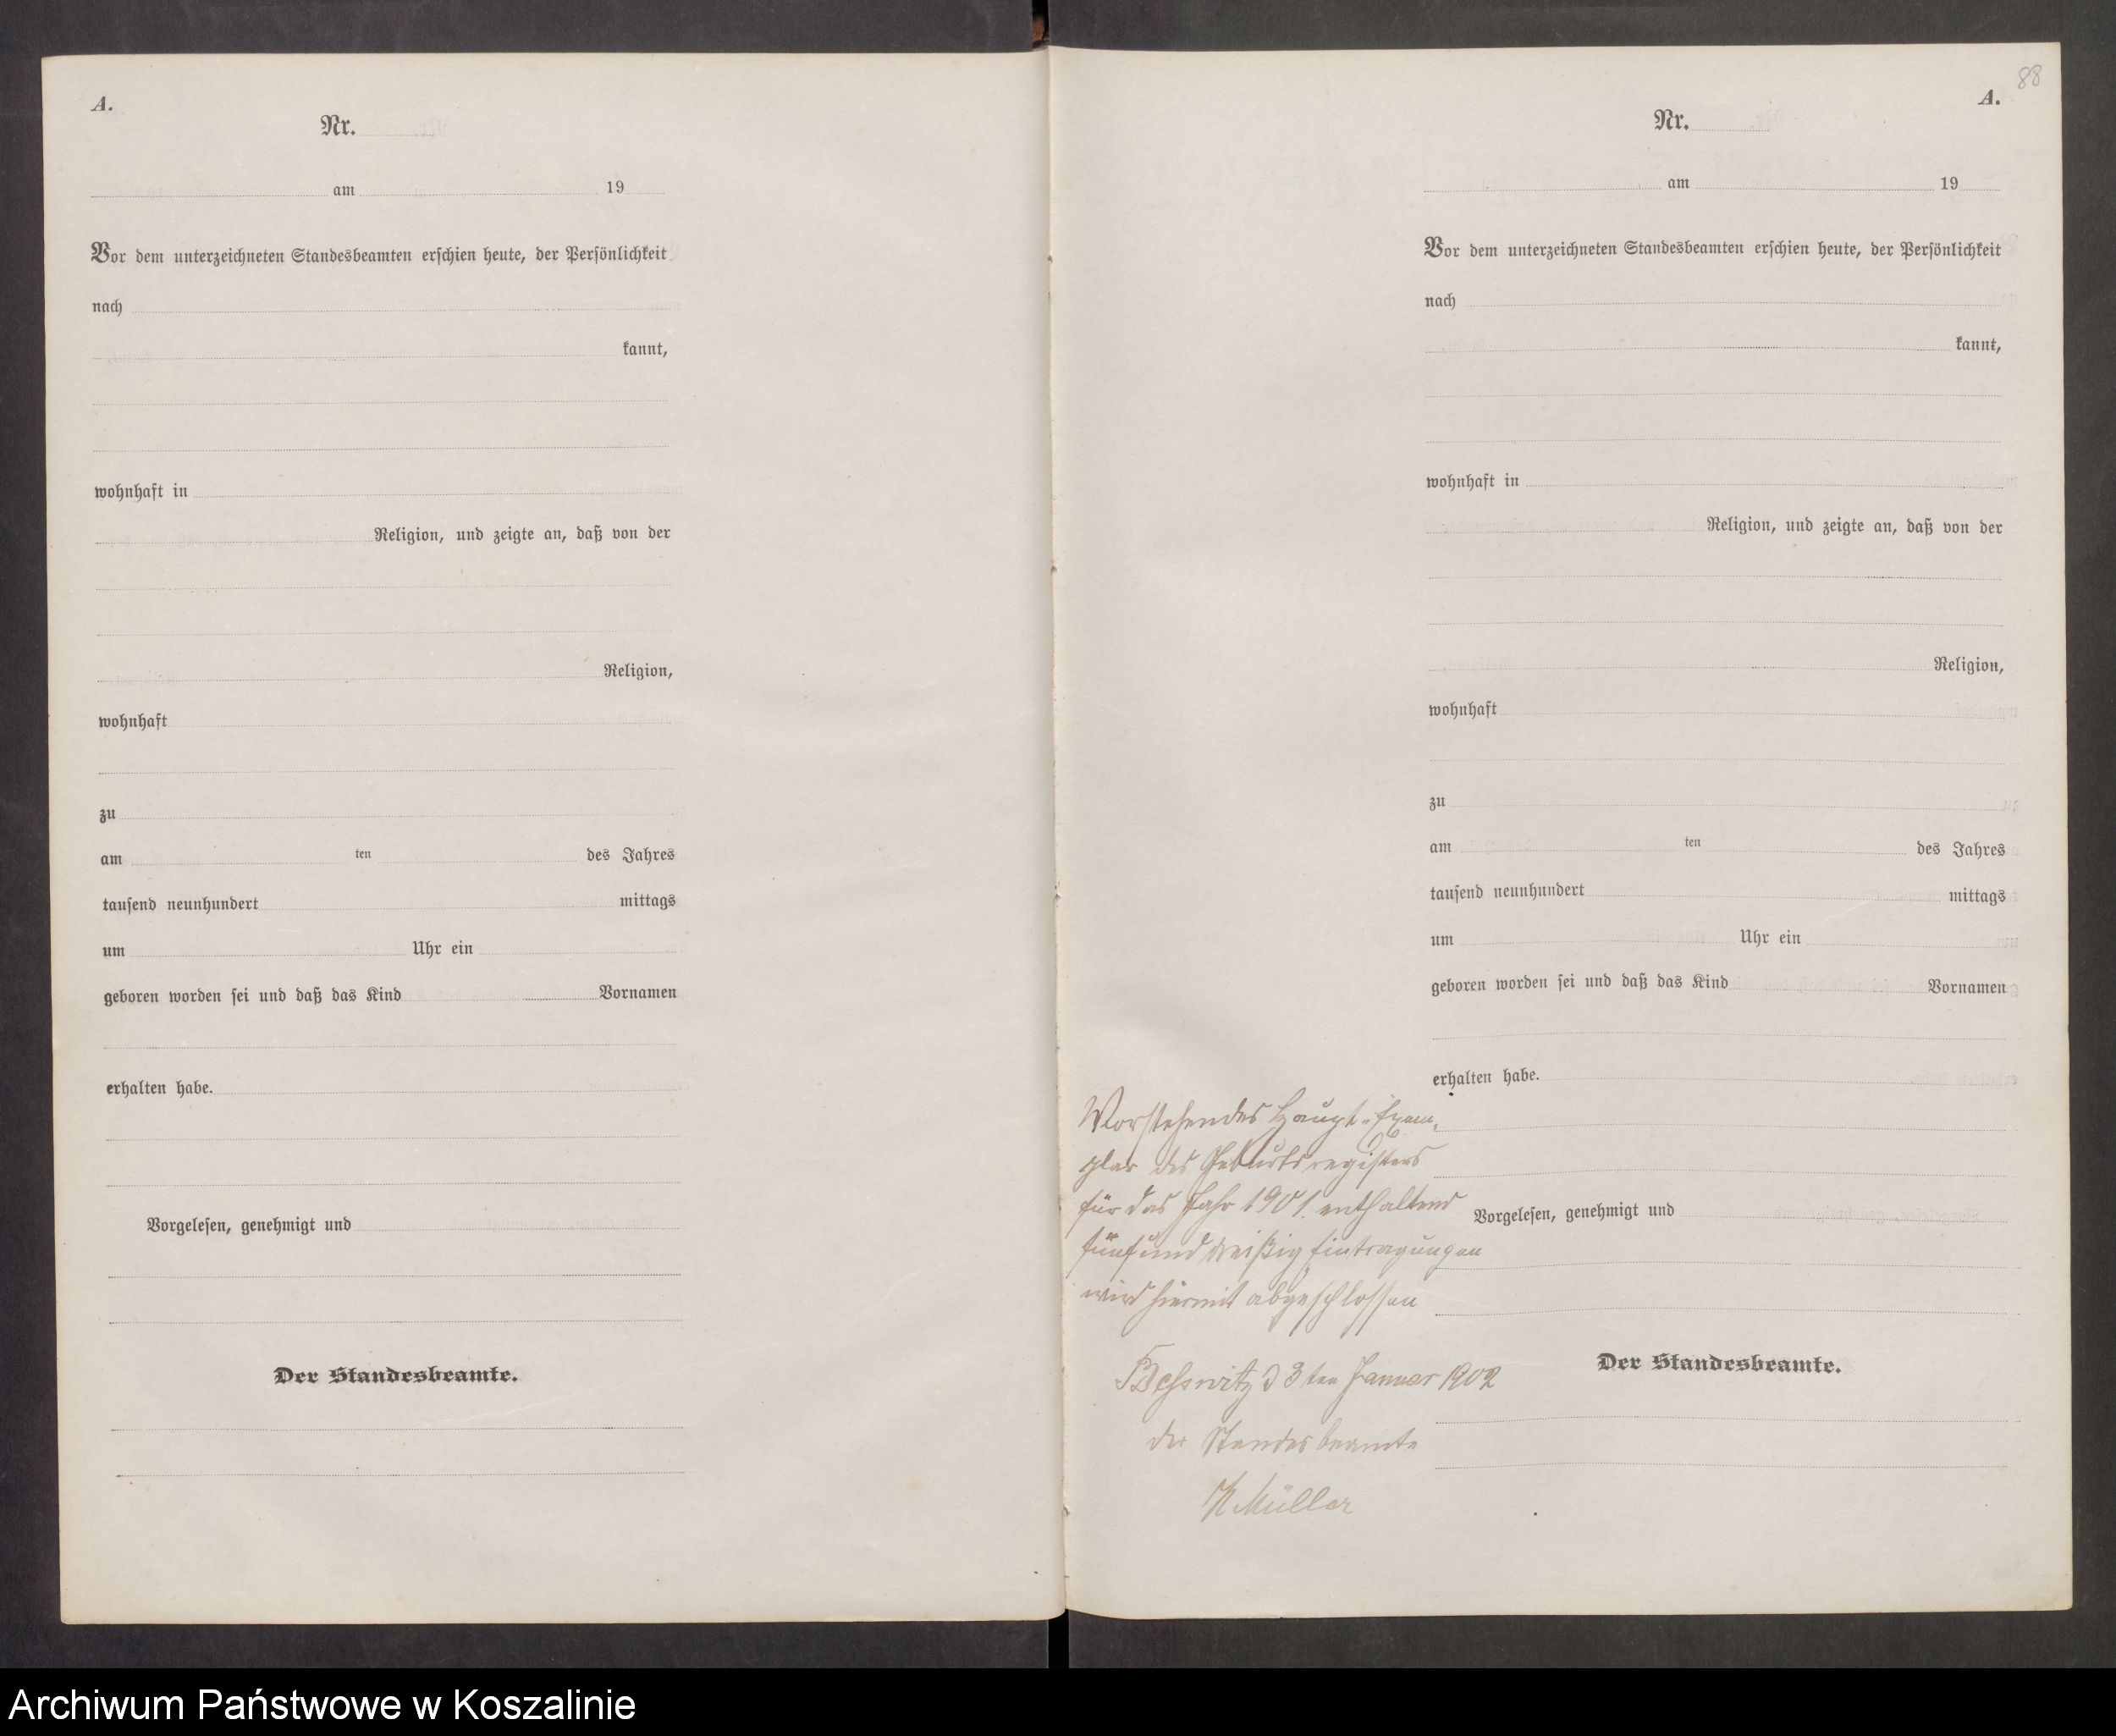 A.
Nr.
am 19
Vor dem unterzeichneten Standesbeamten erschien heute, der Persönlichkeit
nach
kannt,
wohnhaft in
Religion, und zeigte an, daß von der
Religion,
wohnhaft
zu
am ten des Jahres
tausend neunhundert mittags
um Uhr ein
geboren worden sei und daß das Kind Vornamen
erhalten habe.
Vorgelesen, genehmigt und
Der Standesbeamte.
88
A.
Nr.
am 19
Vor dem unterzeichneten Standesbeamten erschien heute, der Persönlichkeit
nach
kannt,
wohnhaft in
Religion, und zeigte an, daß von der
Religion,
wohnhaft
zu
am ten des Jahres
tausend neunhundert mittags
um Uhr ein
geboren worden sei und daß das Kind Vornamen
erhalten habe.
Vorgelesen, genehmigt und
Der Standesbeamte.
Vorstehendes Haupt-Exem-
plar des Geburtsregisters
für das Jahr 1901. enthaltend
fünfunddreißig Eintragungen
wird hiermit abgeschlossen
3ten Januar 1902
der Standesbeamte
Müller
Archiwum Państwowe w Koszalinie